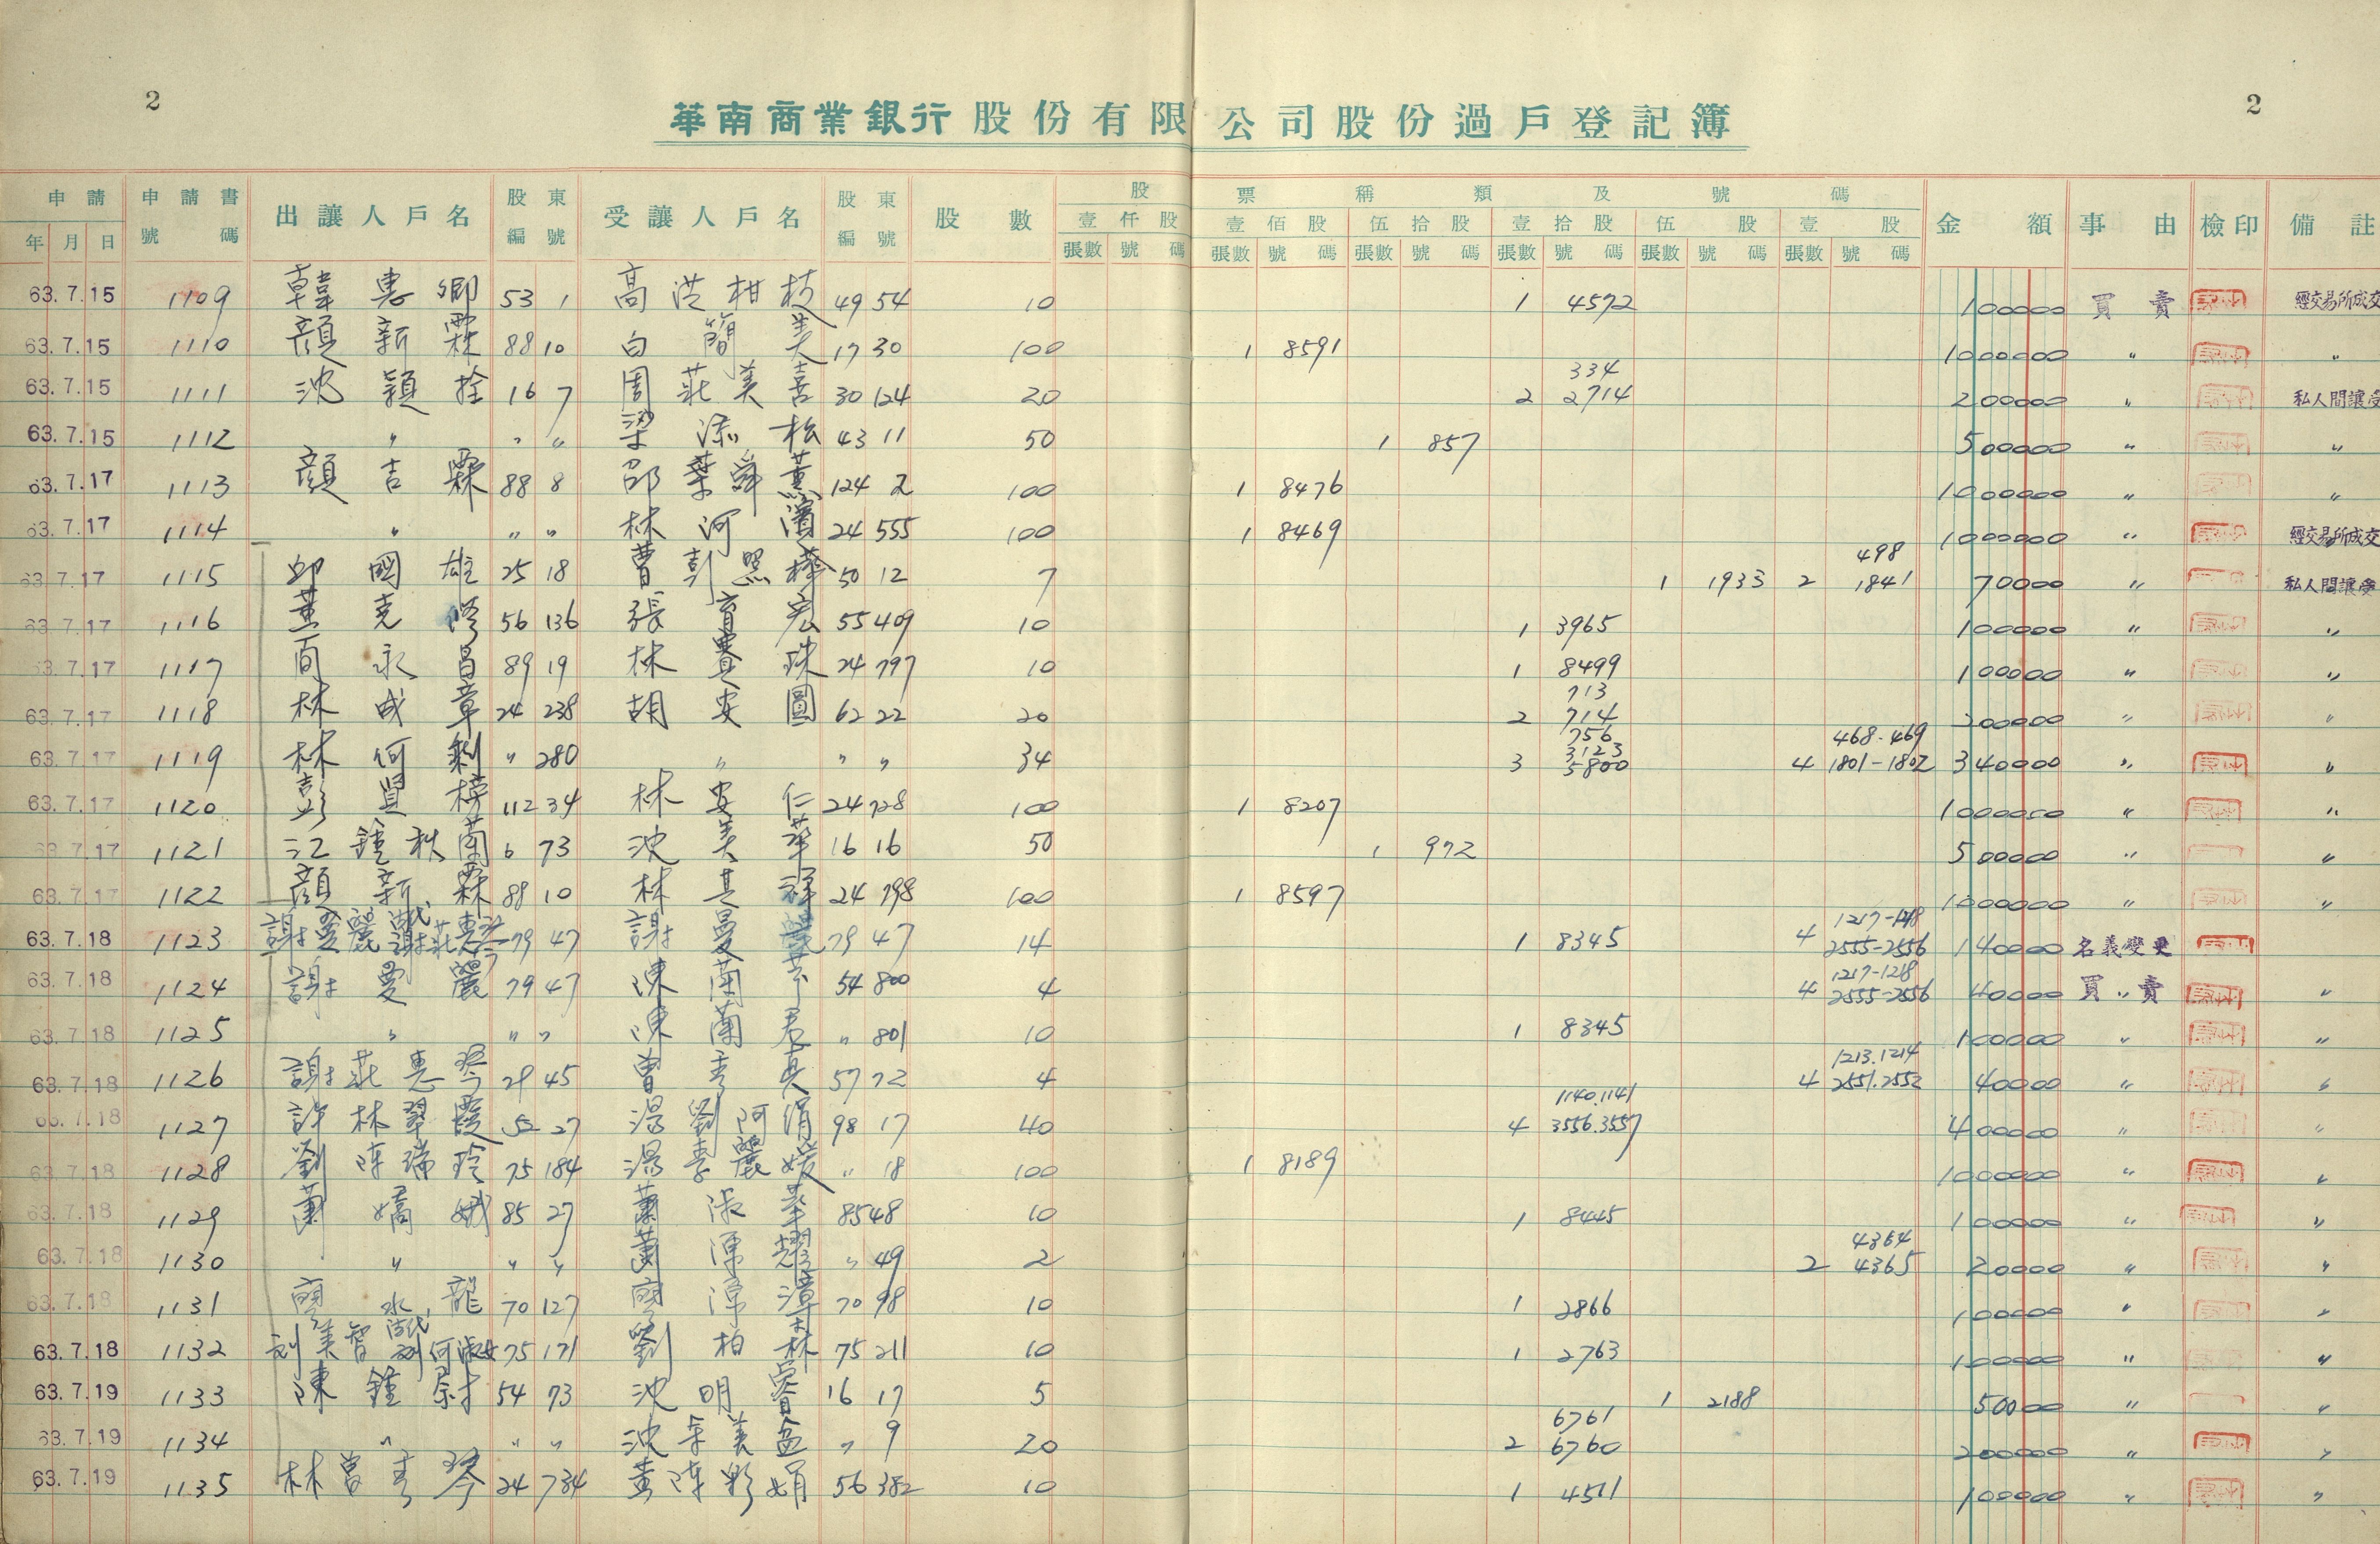 2
2
華南商業銀行股份有限公司股份過戶登記簿
申請 申請書 出讓人戶名 股東 受讓人戶名 股東 股數 股票種類及號碼 金額 事由 檢印 備註
年 月 日 號碼 編號 編號 壹仟股 壹佰股 伍拾股 壹拾股 伍股 壹股
張數 號碼 張數 號碼 張數 號碼 張數 號碼 張數 號碼 張數 號碼
63.7.15 1109 韓惠卿 53 1 高洪柑枝 49 54 10 1 4572 100000 買賣 經交易所成交
63.7.15 1110 顏新霖 88 10 白簡美 17 30 100 1 8591 1000000 〃 〃
63.7.15 1111 沈穎拴 16 7 周莊美喜 30 124 20 2 334 2714 200000 〃 私人間讓受
63.7.15 1112 〃 〃 〃 梁添松 43 11 50 1 857 500000 〃 〃
63.7.17 1113 顏吉霖 88 8 邵葉舜薰 124 2 100 1 8476 1000000 〃 〃
63.7.17 1114 〃 〃 〃 林河濱 24 555 100 1 8469 1000000 〃 經交易所成交
63.7.17 1115 邱國雄 25 18 曹彭照 50 12 7 1 1933 2 498 1841 70000 〃 私人間讓受
63.7.17 1116 董克 56 136 張育宏 55 409 10 1 3965 100000 〃 〃
63.7.17 1117 永昌 89 19 林寶珠 24 797 10 1 8499 100000 〃 〃
63.7.17 1118 林成章 24 238 胡安圖 62 22 20 2 713 714 200000 〃 〃
63.7.17 1119 林何剩 〃 280 〃 〃 〃 34 3 756 3123 5800 4 468-469 1801-1802 340000 〃 〃
63.7.17 1120 彭賢榜 112 34 林安仁 24 728 100 1 8207 1000000 〃 〃
63.7.17 1121 江鍾秋蘭 6 73 沈美華 16 16 50 1 972 500000 〃 〃
63.7.17 1122 顏新霖 88 10 林其祥 24 798 100 1 8597 1000000 〃 〃
63.7.18 1123 謝曼麗 謝莊惠琴 79 47 謝曼麗 79 47 14 1 8345 4 1217-1218 2555-2556 140000 名義變更
63.7.18 1124 謝曼麗 79 47 陳蘭芬 54 800 4 4 1217-1218 2555-2556 40000 買賣 〃
63.7.18 1125 〃 〃 〃 陳蘭君 〃 801 10 1 8345 100000 〃 〃
63.7.18 1126 謝莊惠琴 79 45 曾秀英 57 72 4 4 1213.1214 2551.2552 40000 〃 〃
63.7.18 1127 許林翠霞 52 27 湯劉阿絹 98 17 40 4 1140.1141 3556.3557 400000 〃 〃
63.7.18 1128 劉陳瑞玲 75 184 湯李麗媛 〃 18 100 1 8189 1000000 〃 〃
63.7.18 1129 蕭嬌娥 85 27 蕭淑華 85 48 10 1 8445 100000 〃 〃
63.7.18 1130 〃 〃 〃 蕭耀 〃 49 2 2 4364 4365 20000 〃 〃
63.7.18 1131 廖水龍 70 127 廖漳 70 98 10 1 2866 100000 〃 〃
63.7.18 1132 劉美智 劉何淑 75 171 劉柏林 75 211 10 1 2763 100000 〃 〃
63.7.19 1133 陳鍾尉 54 73 沈明睿 16 17 5 1 2188 50000 〃 〃
63.7.19 1134 〃 〃 〃 沈辛美 〃 9 20 2 6761 6760 200000 〃 〃
63.7.19 1135 林曾秀琴 24 734 黃陳彩娟 56 382 10 1 4511 100000 〃 〃